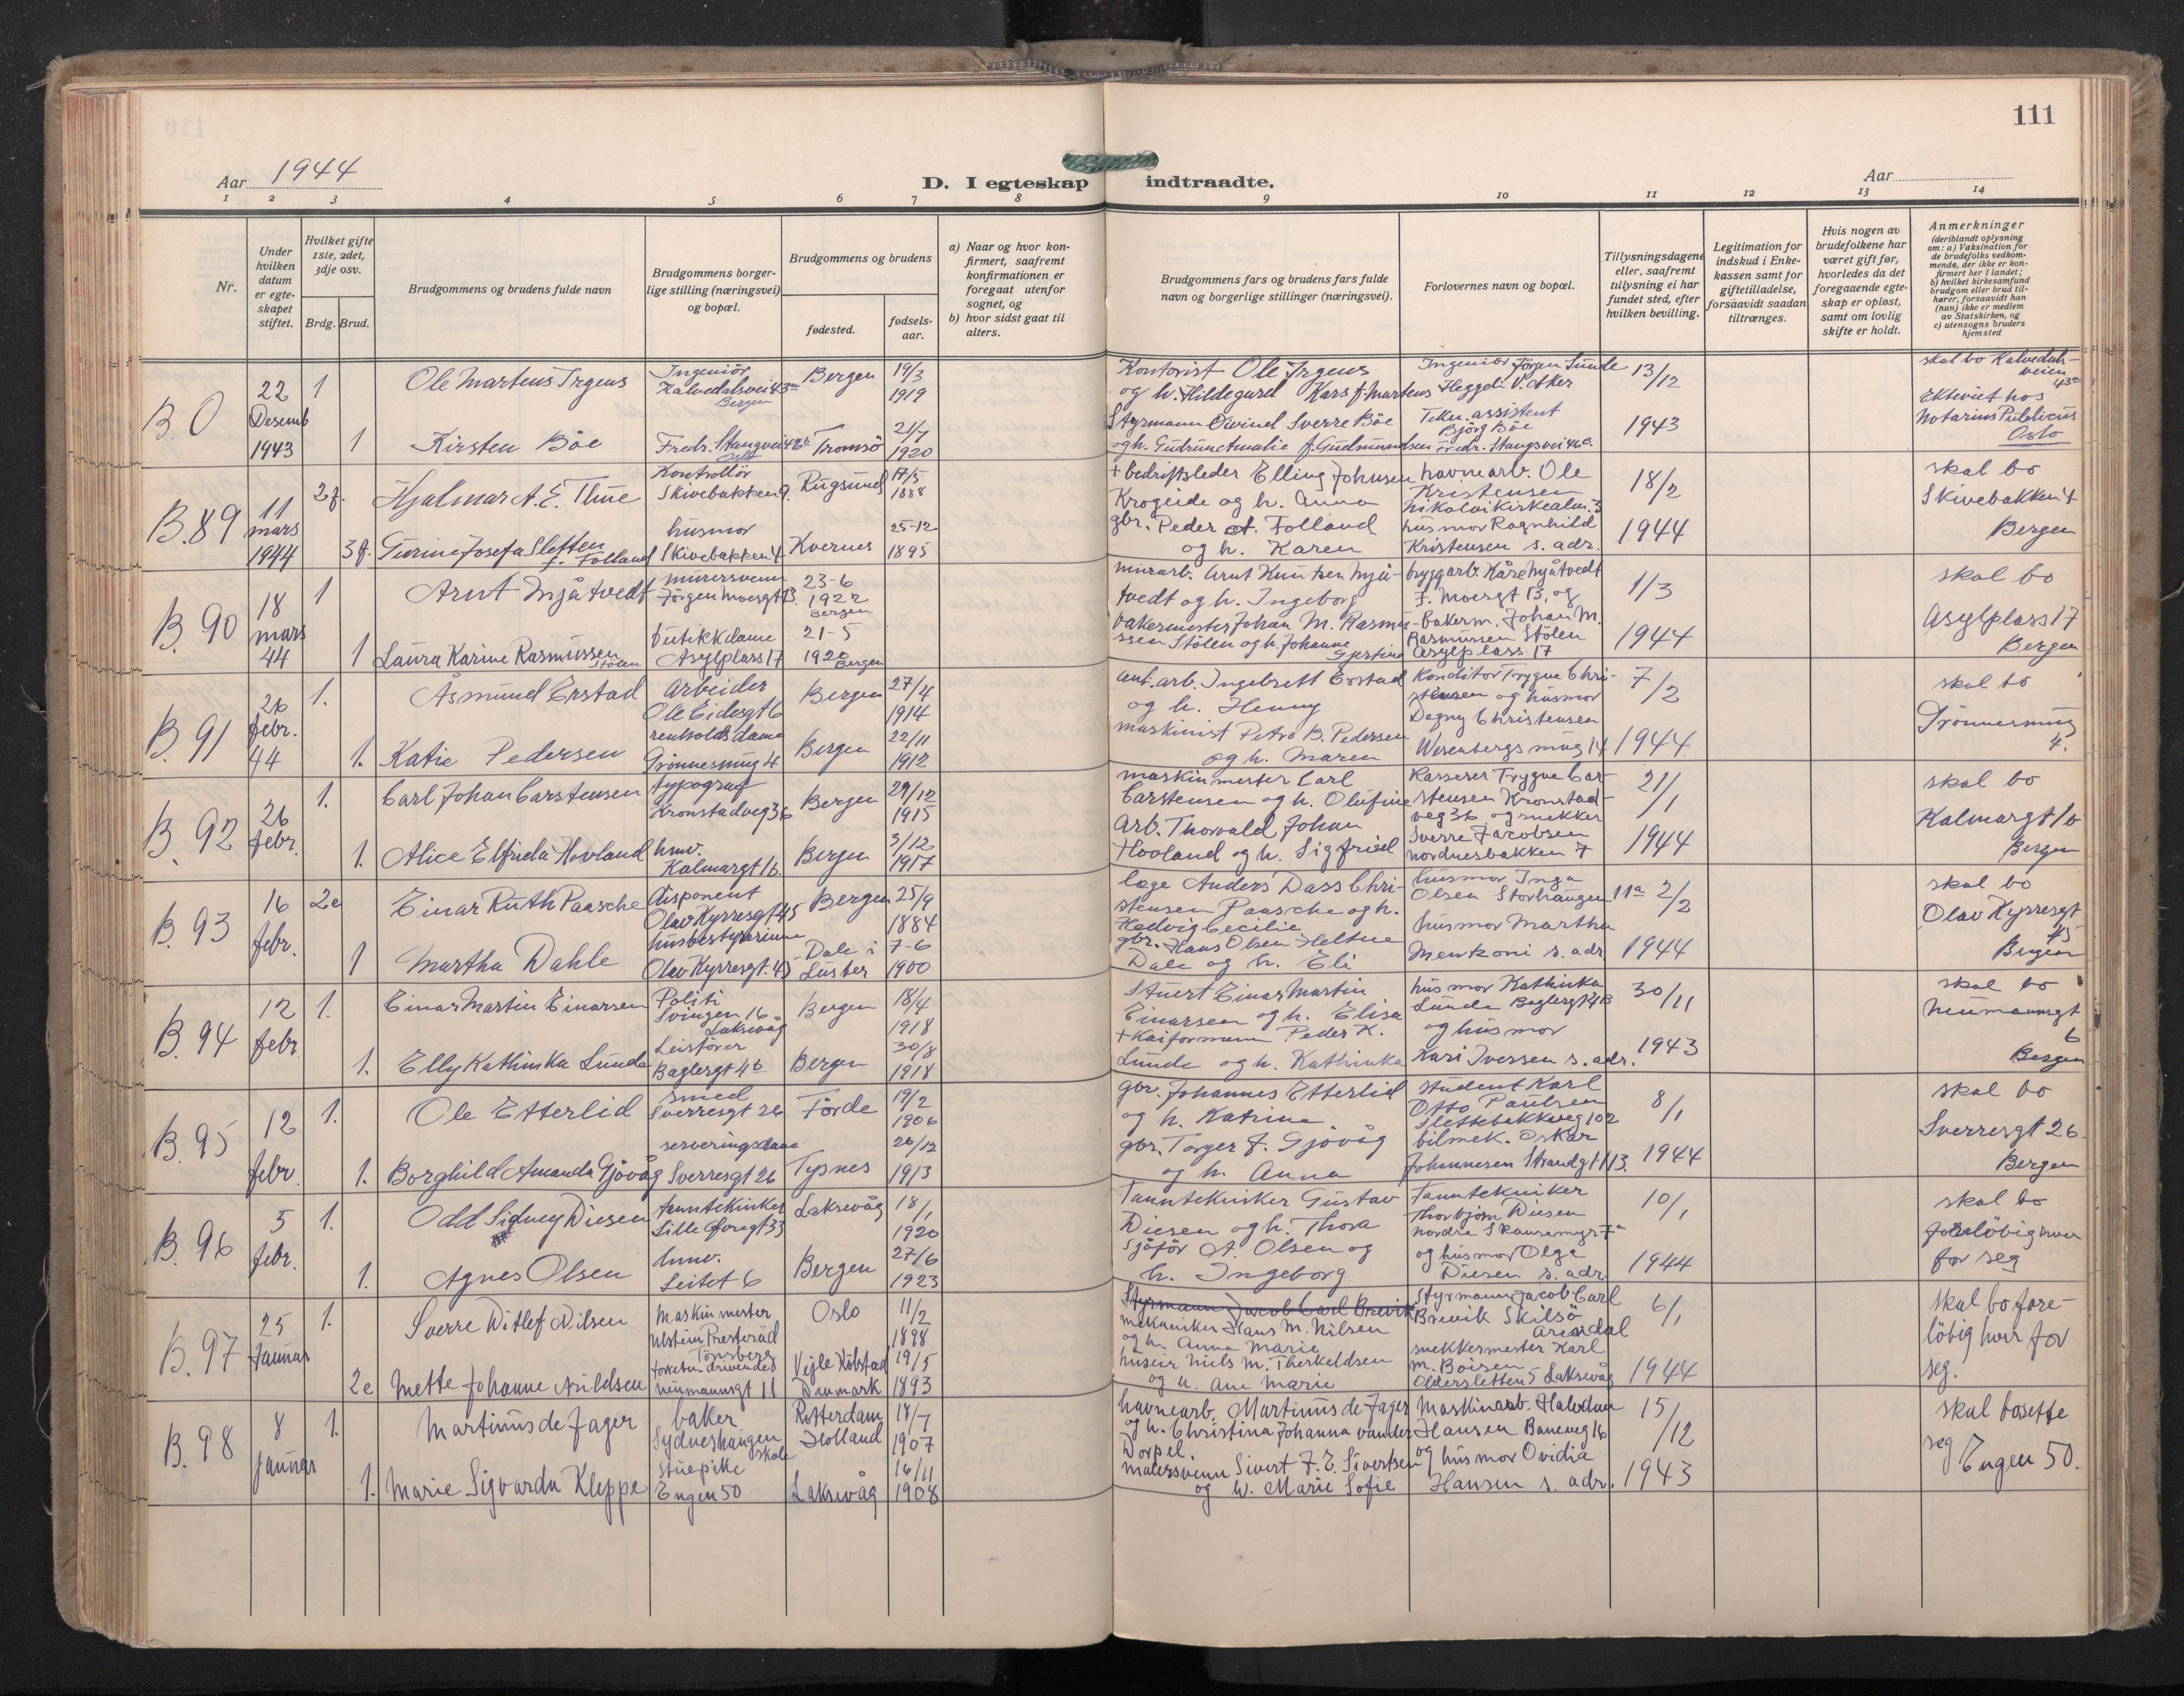 111
Aar 1944
D. I egteskap indtraadte.
Aar
1 2 3 4 5 6 7 8 9 10 11 12 13 14
Nr.
Under hvilken datum er egteskapet stiftet.
Hvilket gifte 1ste, 2det, 3dje osv.
Brdg. Brud.
Brudgommens og brudens fulde navn
Brudgommens borgerlige stilling (næringsvei) og bopæl.
Brudgommens og brudens
fødested.
fødselsaar.
a) Naar og hvor konfirmert, saafremt konfirmationen er foregaat utenfor sognet, og
b) hvor sidst gaat til alters.
Brudgommens fars og brudens fars fulde navn og borgerlige stillinger (næringsvei).
Forlovernes navn og bopæl.
Tillysningsdagene eller, saafremt tillysning ei har fundet sted, efter hvilken bevilling.
Legitimation for indskud i Enkekassen samt for giftetilladelse, forsaavidt saadan tiltrænges.
Hvis nogen av brudefolkene har været gift før, hvorledes da det foregaaende egteskap er opløst, samt om lovlig skifte er holdt.
Anmerkninger
(deriblandt oplysning om: a) Vaksination for de brudefolks vedkommende, der ikke er konfirmert her i landet; b) hvilket kirkesamfund brudgom eller brud tilhører, forsaavidt han (hun) ikke er medlem av Statskirken, og c) utensogns bruders hjemsted
B. 0
22 Desemb 1943
1 Ole Martens Irgens
Ingeniör Kalvedalsvei 43a Bergen
Bergen 19/3 1919
Kontorist Ole Irgens og h. Hildegard Kars f. Martens
Ingeniör Jörgen Sunde Heggeli V. Aker
13/12 1943
1 Kirsten Böe
Fredr. Stangvei 46a Oslo
Tromsö 21/7 1920
Styrmann Öivind Sverre Böe og h. Gudrun Amalie f. Gudmundsen
Tekn. assistent Björg Böe Fredr. Stangsvei 46a
skal bo Kalvedalsveien 43a
Ekteviet hos Notarius Publicus Oslo
B. 89
11 mars 1944
2 f. Hjalmar A. E. Thue
Kontrollör Skivebakken 9.
Rugsund 17/5 1888
+ bedriftsleder Elling Johnsen Krogeide og h. Anna
havnearb. Ole Kristensen Nikolaikirkealm. 3
18/2 1944
3 f. Turine Josefa Sletten f. Folland
husmor Skivebakken 4
Kvernes 25-12 1895
gbr. Peder A. Folland og h. Karen
husmor Ragnhild Kristensen s. adr.
skal bo Skivebakken 4 Bergen
B. 90
18 mars 44
1 Arnt Mjåtvedt
murersvenn Jörgen Moesgt 13.
23-6 1922 Bergen
murarb. Arnt Knutsen Mjåtvedt og h. Ingeborg
bryggarb. Kåre Mjåtvedt J. Moesgt 13, og
1/3 1944
1 Laura Karine Rasmussen Stölen
butikkdame Asylplass 17
21-5 1920 Bergen
bakermester Johan M. Rasmussen Stölen og h. Johanne Gjertine
bakerm. Johan M. Rasmussen Stölen Asylplass 17
skal bo Asylplass 17 Bergen
B. 91
26 febr. 44
1. Åsmund Erstad
Arbeider Ole Eidesgt 6
Bergen 27/4 1914
anl. arb. Ingebrett Erstad og h. Henny
Konditor Trygve Christensen og husmor Dagny Christensen Wesenbergs smug 14
7/2 1944
1. Katie Pedersen
renholdsdame Grönnesmug 4
Bergen 22/11 1912
maskinist Petro B. Pedersen og h. Maren
skal bo Grönnesmug 4.
B. 92
26 febr.
1. Carl Johan Carstensen
typograf Kronstadveg 36
Bergen 29/12 1915
maskinmester Carl Carstensen og h. Olufine
Kasserer Trygve Carstensen Kronstadveg 36 og snekker Sverre Jacobsen Nordnesbakken 7
21/1 1944
1. Alice Elfrida Hovland
hmv. Kalmargt 1b
Bergen 3/12 1917
Arb. Thorvald Johan Hovland og h. Sigfried
skal bo Kalmargt 1b Bergen
B. 93
16 febr.
2e Einar Ruth Paasche
Disponent Olav Kyrresgt 45
Bergen 25/9 1884
læge Anders Dass Christensen Paasche og h. Hedvig Cecilie
husmor Inga Olsen Storhaugen 11a
2/2 1944
1 Martha Dahle
husbestyrerinne Olav Kyrresgt. 45
Dale i Luster 7-6 1900
gbr. Hans Olsen Heltne Dale og h. Eli
husmor Martha Mentzoni s. adr.
skal bo Olav Kyrresgt 45 Bergen
B. 94
12 febr.
1. Einar Martin Einarsen
Politi Svingen 16 Laksevåg
Bergen 18/4 1918
Stuert Einar Martin Einarsen og h. Elisa
husmor Kathinka Lunde Baglergt 4B og husmor Kari Iversen s. adr.
30/11 1943
1. Elly Kathinka Lunde
Baglergt 4b
Bergen 30/8 1918
+ Kaiformann Peder K. Lunde og h. Kathinka
skal bo Neumannsgt 6 Bergen
B. 95
12 febr.
1. Ole Etterlid
smed Sverresgt 26
Förde 19/2 1906
gbr. Johannes Etterlid og h. Katrine
student Karl Otto Paulsen Slettebakkveg 102
8/1 1944
1. Borghild Amanda Gjövåg
serveringsdame Sverresgt 26
Tysnes 26/12 1913
gbr. Torger J. Gjövåg og h. Anna
bilmek. Oskar Johannesen Strandgt 113.
skal bo Sverresgt 26 Bergen
B. 96
5 febr.
1. Odd Sidney Diesen
tanntekniker Lille Övregt 33
Laksevåg 18/1 1920
Tanntekniker Gustav Diesen og h. Thora
Tanntekniker Thorbjörn Diesen Nordre Skansemyr 7a og husmor Olga Diesen s. adr.
10/1 1944
1. Agnes Olsen
hmv. Leitet 6
Bergen 27/6 1923
Sjåför A. Olsen og h. Ingeborg
skal bo foreløbig hver for seg
B. 97
25 Januar
1. Sverre Ditlef Nilsen
Maskinmester Ulstein Presteråd Tönsberg
Oslo 11/2 1898
Styrmann Jacob Carl Brevik
mekaniker Hans M. Nilsen og h. Anna Marie
Styrmann Jacob Carl Brevik Skilsö Arendal
6/1 1944
2e Mette Johanne Nildsen
forretn. drivende Neumannsgt 11
Vejle Købstad Dnmark 19/5 1893
huseier Niels M. Therkeldsen og h. Ane Marie
snekkermester Karl M. Boisen Oldersletten 5 Laksevåg
skal bo foreløbig hver for seg.
B. 98
8 Januar
1. Martinus de Jager
baker Sydneshaugen skole
Rotterdam Holland 18/7 1907
havnearb. Martinus de Jager og h. Christina Johanna vander Dorpel.
Maskinarb. Halvdan Hansen Baneveg 16 og husmor Ovidia Hansen s. adr.
15/12 1943
1. Marie Sigvarda Kleppe
stuepike Engen 50
Laksevåg 16/11 1908
malersvenn Sivert J. E. Sivertsen og h. Marie Sofie
skal bosette seg Engen 50.